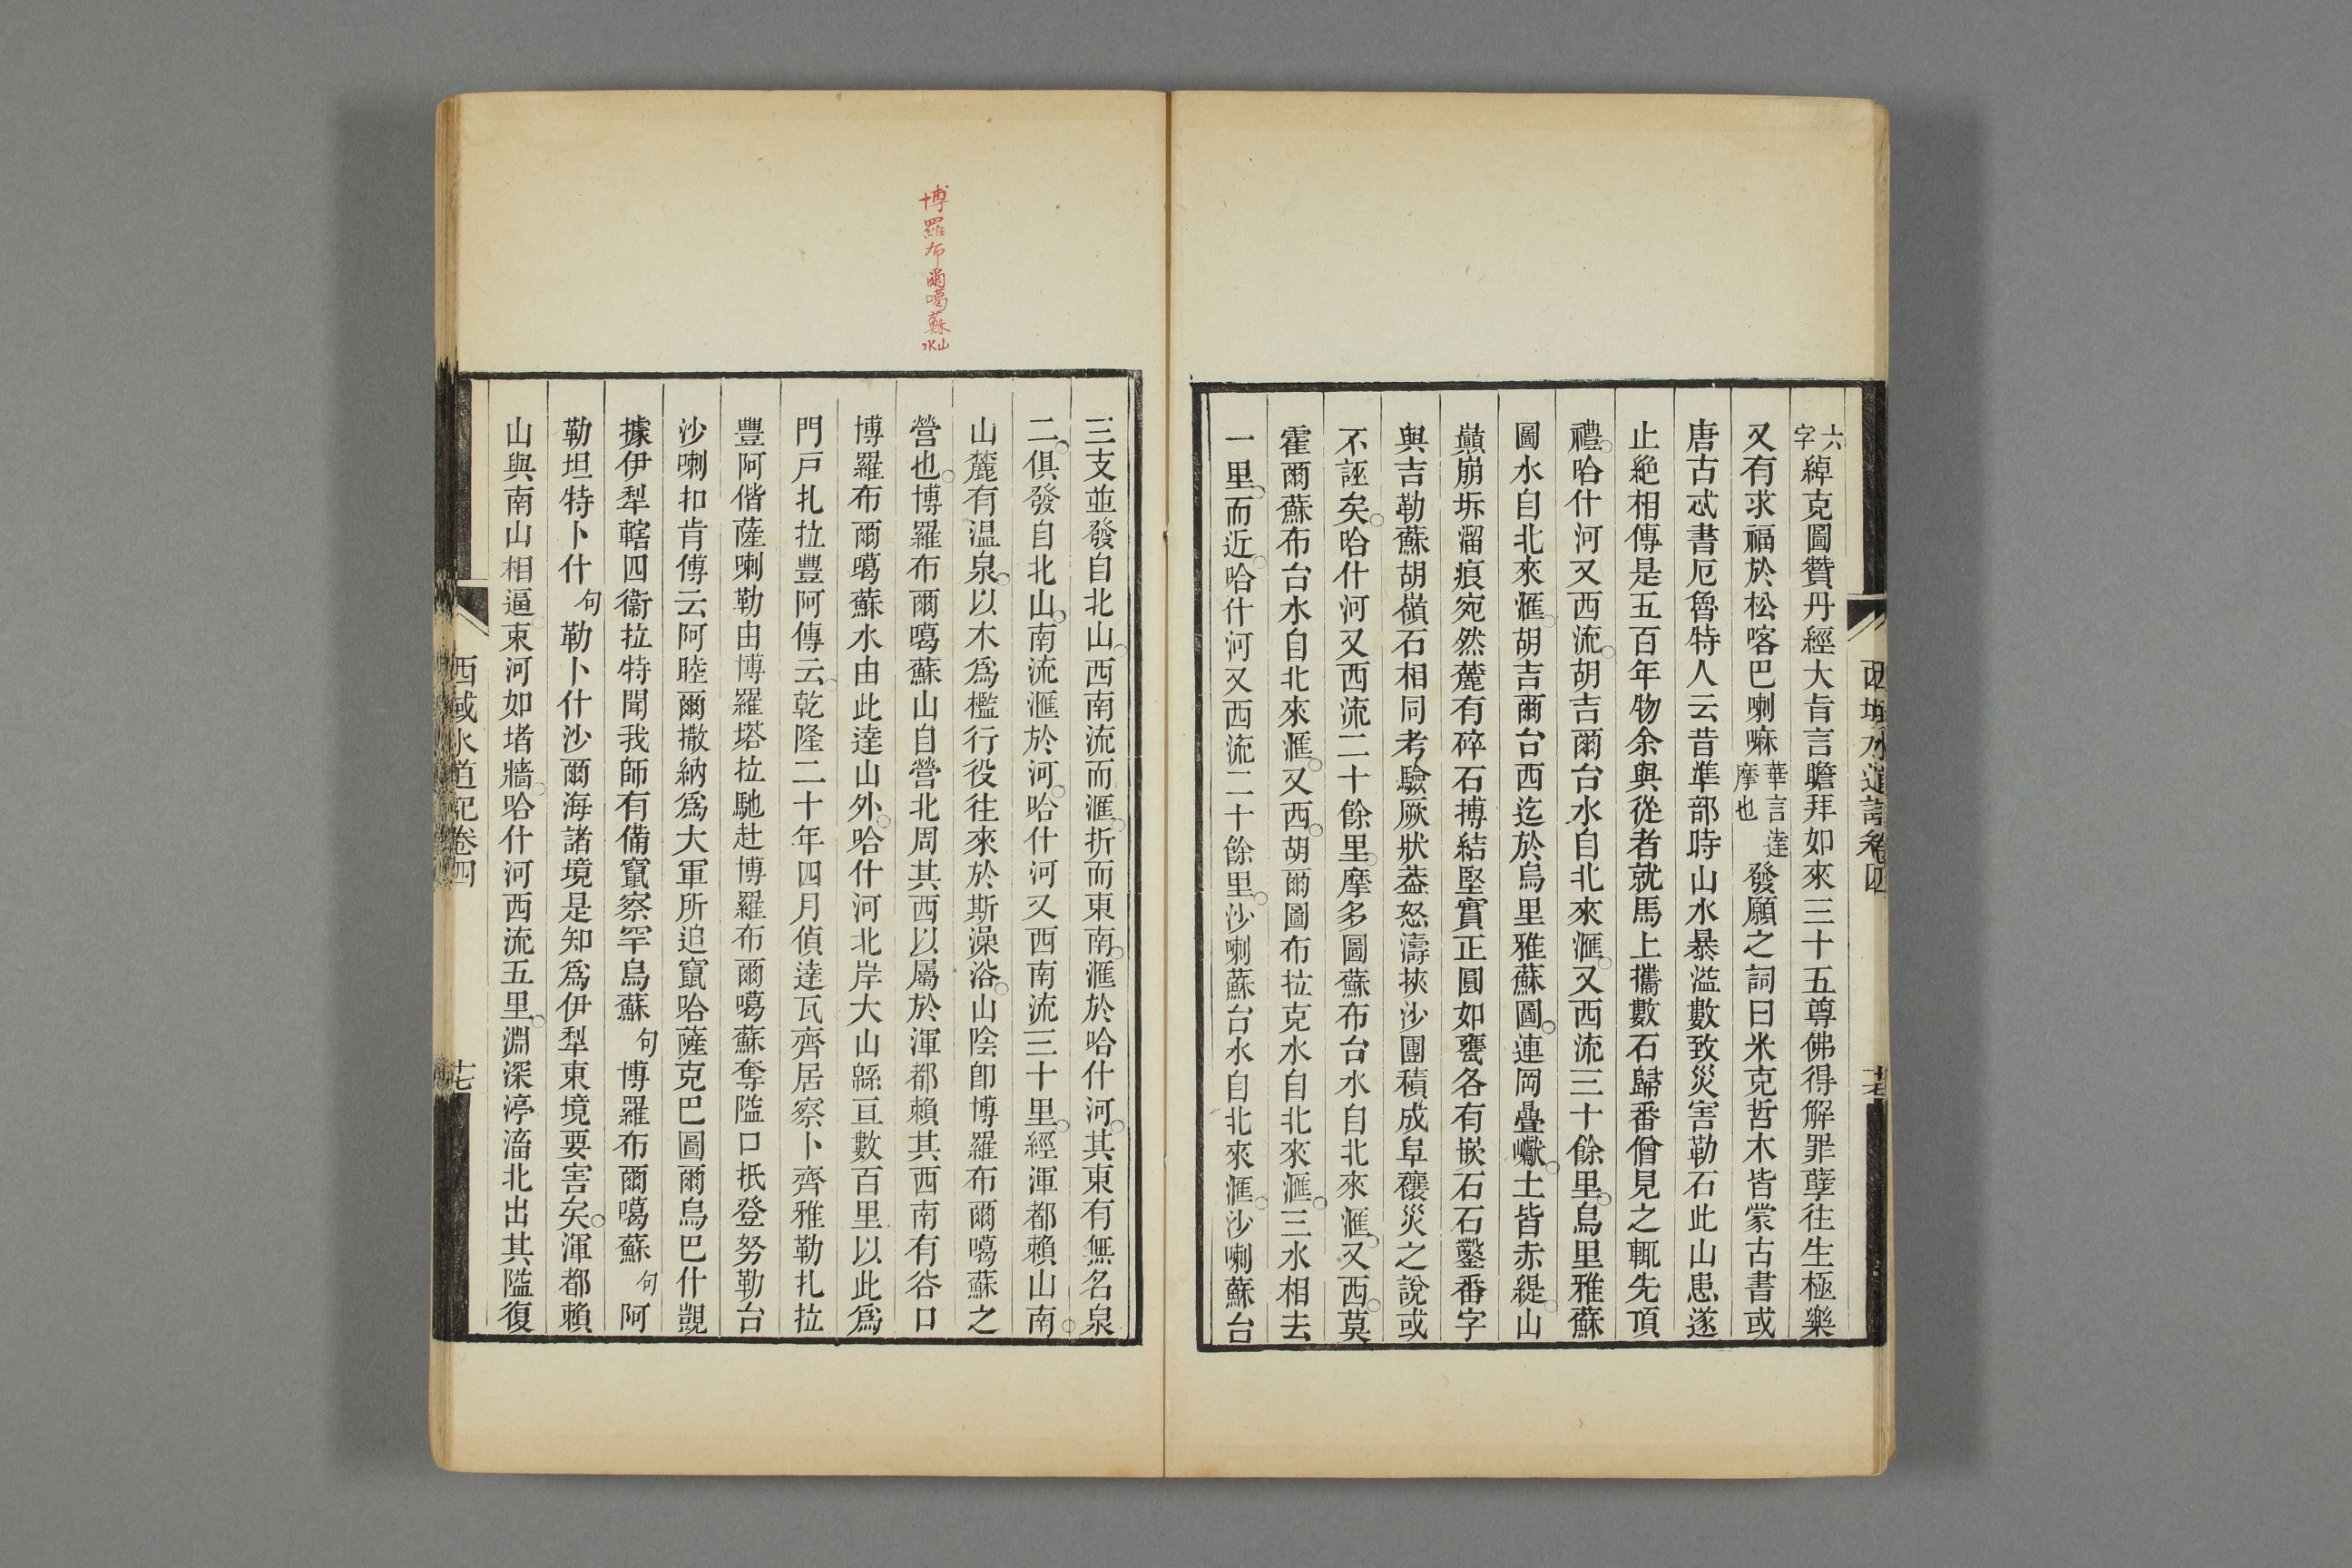 六字綽克圖贊丹經大旨言瞻拜如來三十五尊佛得解罪孽往生極樂
又有求福於松喀巴喇嘛華言達摩也發願之詞曰米克哲木皆蒙古書或
唐古忒書厄魯特人云昔準部時山水暴溢數致災害勒石此山患遂
止絕相傳是五百年物余與從者就馬上攜數石歸番僧見之輒先頂
禮哈什河又西流胡吉爾台水自北來滙又西流三十餘里烏里雅蘇
圖水自北來滙胡吉爾台西迄於烏里雅蘇圖連岡疊巘土皆赤緹山
巔崩坼溜痕宛然麓有碎石摶結堅實正圓如甕各有嵌石石鑿番字
與吉勒蘇胡嶺石相同考驗厥狀葢怒濤挾沙團積成阜禳災之說或
不誣矣哈什河又西流二十餘里摩多圖蘇布台水自北來滙又西莫
霍爾蘇布台水自北來滙又西胡爾圖布拉克水自北來滙三水相去
一里而近哈什河又西流二十餘里沙喇蘇台水自北來滙沙喇蘇台
西域水道記卷四
三支並發自北山西南流而滙折而東南滙於哈什河其東有無名泉
二俱發自北山南流滙於河哈什河又西南流三十里經渾都賴山南
山麓有温泉以木爲檻行役往來於斯澡浴山陰卽博羅布爾噶蘇之
營也博羅布爾噶蘇山自營北周其西以屬於渾都賴其西南有谷口
博羅布爾噶蘇水由此達山外哈什河北岸大山緜亘數百里以此爲
門戸扎拉豐阿傳云乾隆二十年四月偵達瓦齊居察卜齊雅勒扎拉
豐阿偕薩喇勒由博羅塔拉馳赴博羅布爾噶蘇奪隘口抵登努勒台
沙喇扣肯傳云阿睦爾撒納爲大軍所追竄哈薩克巴圖爾烏巴什覬
據伊犁轄四衞拉特聞我師有備竄察罕烏蘇句博羅布爾噶蘇句阿
勒坦特卜什句勒卜什沙爾海諸境是知爲伊犁東境要害矣渾都賴
山與南山相逼束河如堵牆哈什河西流五里淵深渟滀北出其隘復
西域水道記卷四
十七
博羅布爾噶蘇山水